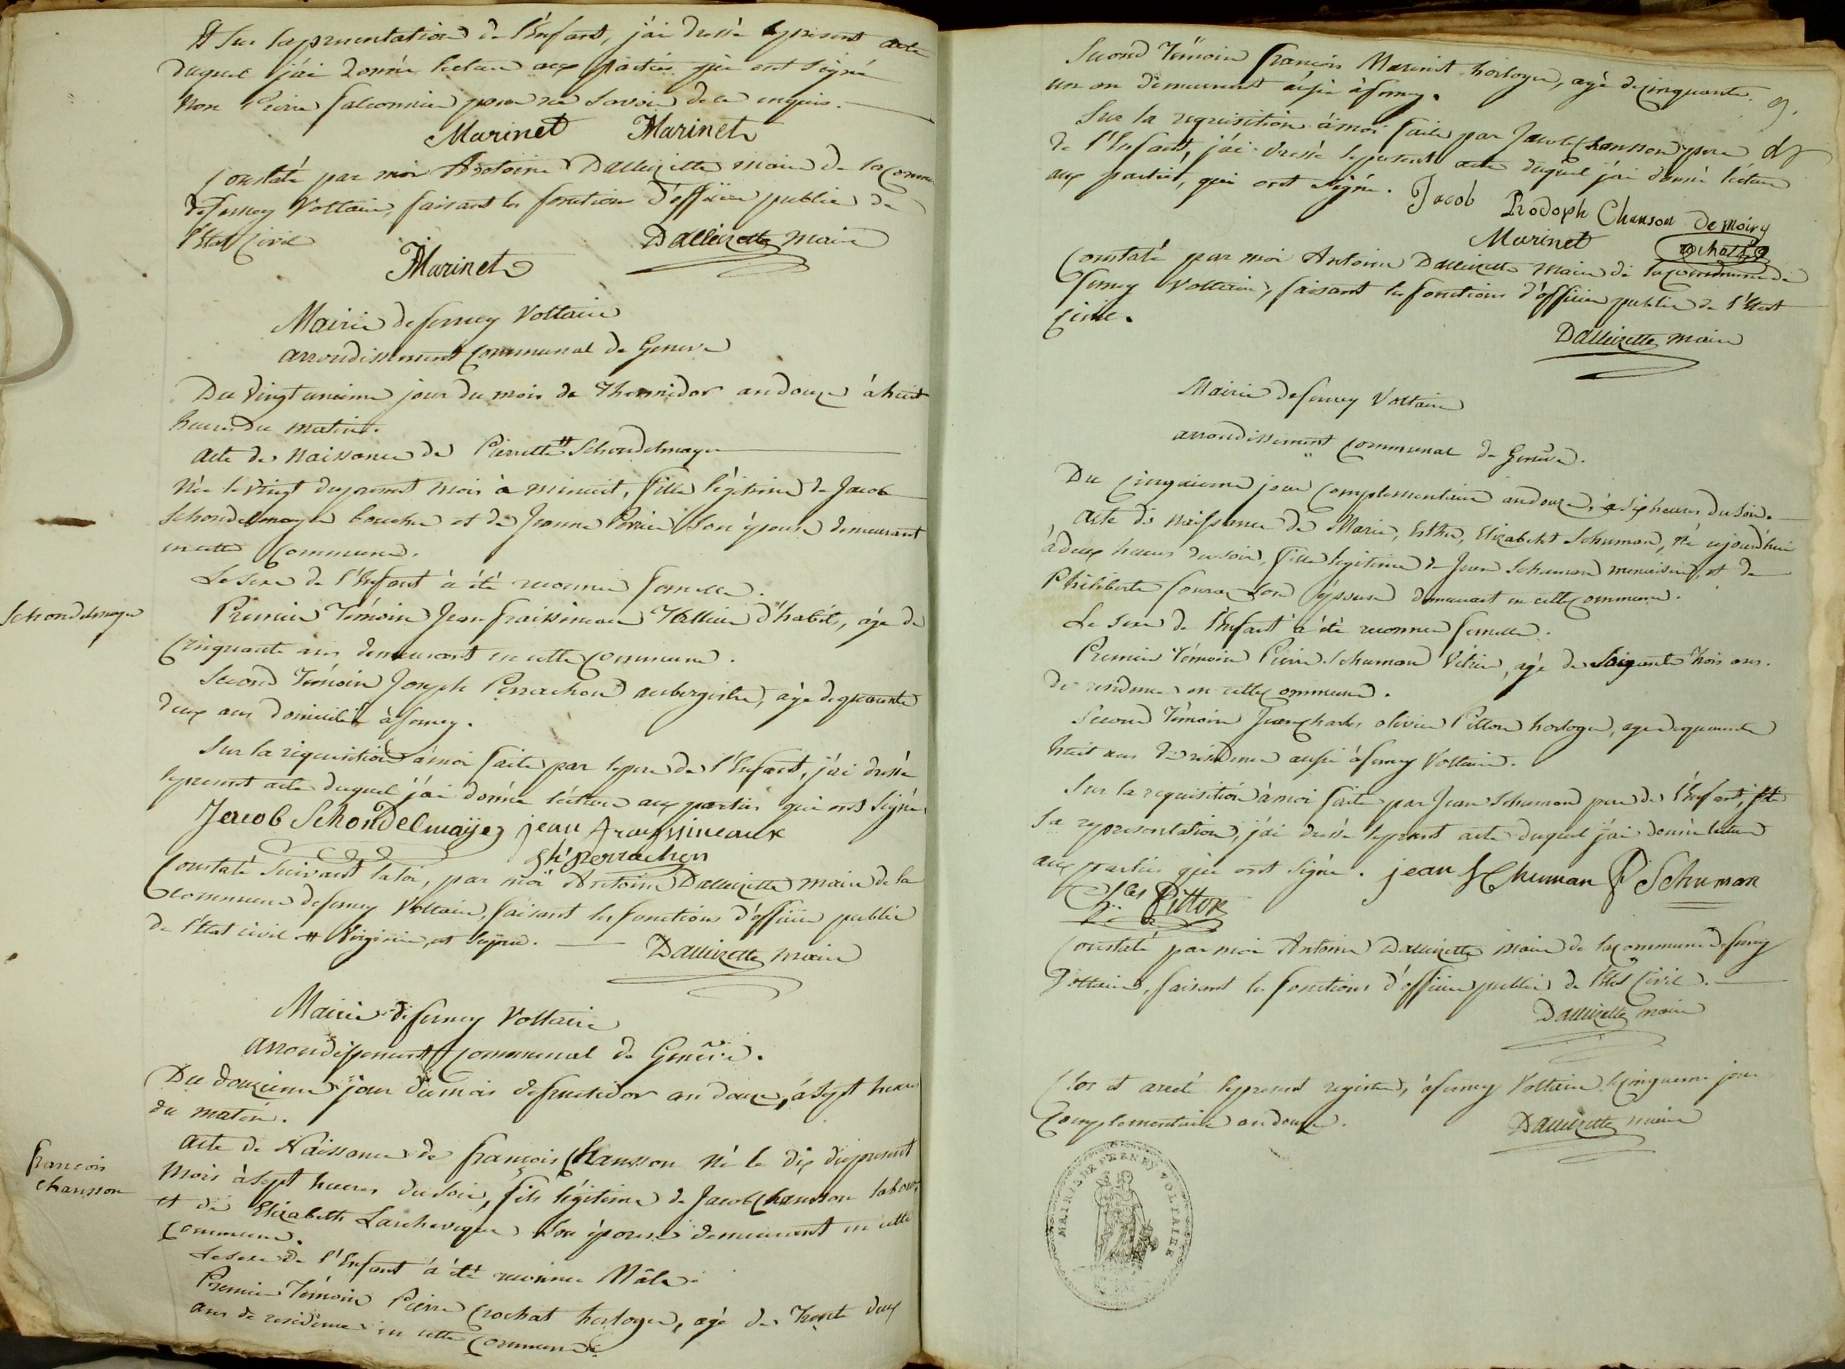 Et Sur la presentation de l'Enfant, j'ai dressé le present acte
duquel j'ai donné lecture aux parties qui ont signé
non Pierre falconnier pour ne Savoir de ce enquis.
Marinet Marinet
Constaté par moi Antoine Dallizette maire de la Comm
de ferney Voltaire, faisant les fonctions d'officier public de
l'Etat Civil
Dallizette maire
Marinet
Mairie de ferney Voltaire
arrondissement Communal de Geneve
Du vingt unieme jour du mois de Thermidor an douze à huit
heures du matin.
acte de Naissance de Pierrette # Schondelmayer
Née le vingt du present mois à minuit, fille légitime de Jacob
Schondelmayer boucher et de Jeanne Perrier Son épouse demeurant
en cette Commune.
Le sexe de l'Enfant à été reconnu femelle.
Schondelmayer
Premier Témoin Jean fraissineau Tallieur d'habit, âgé de
Cinquante ans demeurant en cette Commune.
Second Témoin Joseph Perrachon aubergiste, âgé de quarante
deux ans domicilié à ferney.
Sur la requisition à moi faite par le pere de l'Enfant, j'ai dressé
le present acte duquel j'ai donné lecture aux parties qui ont signé.
Jacob Schondelmayer jean fraissineaux
Jh perrachon
Constaté Suivant la loi, par moi Antoine Dallizette maire de la
Commune de ferney Voltaire, faisant les fonctions d'officier public
de l'Etat civil # Virginie, et Signé.
Dallizette maire
Mairie de ferney Voltaire
arrondissement Communal de Genève.
Du douzieme jour du mois de fructidor an douze, à Sept heures
du matin.
acte de Naissance de françois Chansson Né le dix du present
françois
Chansson
Mois à Sept heures du Soir, fils légitime de Jacob Chansson labour
et de Elizabeth Larcheveque Son épouse demeurant en cette
Commune.
Le sexe de l'Enfant à été reconnu Mâle.
Premier Témoin Pierre Crochat horloger, agé de Trente deux
ans de residence en cette Commune
Second Témoin françois Marinet horloger, agé de cinquante
un an demeurant aussi à ferney.
9.
Sur la requisition à moi faite par Jacob Chansson pere
de l'Enfant, j'ai dressé le present acte duquel j'ai donné lecture
aux parties, qui ont signé.
Jacob Rodolph Chanson De Moiry
Marinet
Constaté par moi Antoine Dallizette Maire de la commune de
ferney Voltaire, faisant les fonctions d'officier public de l'Etat
Civil.
Dallizette maire
Mairie de ferney Voltaire
arrondissement Communal de Genève.
Du Cinquieme jour Complementaire an douze, à Six heures du Soir.
Acte de Naissance de Marie, Esther, Elizabeht Schuman, Né cejourdhui
à deux heures du soir, fille legitime de Jean Schuman menuisier, et de
Philiberte Son épouse demeurant en cette Commune.
Le Sexe de l'Enfant à été reconnu femelle.
Premier Témoin Pierre Schuman Vitrier, agé de Soixante trois ans.
de residence en cette Commune.
Second Témoin Jean Charles olivier Pitton horloger, agé de quarante
huit ans de residence aussi à ferney Voltaire.
Sur la requisition à moi faite par Jean Schuman pere de l'Enfant, et
Sa representation, j'ai dressé le present acte duquel j'ai donné lecture
aux parties qui ont signé. jean SChuman P Schuman
Pitton
Constaté par moi Antoine Dallizette Maire de la commune de ferney
Voltaire, faisant les fonctions d'officier public de l'Etat Civil.
Dallizette maire
Clos et areté le present registre, à ferney Voltaire le cinquieme jour
Complementaire an douze.
Dallizette maire
MAIRIE DE FERNEY VOLTAIRE